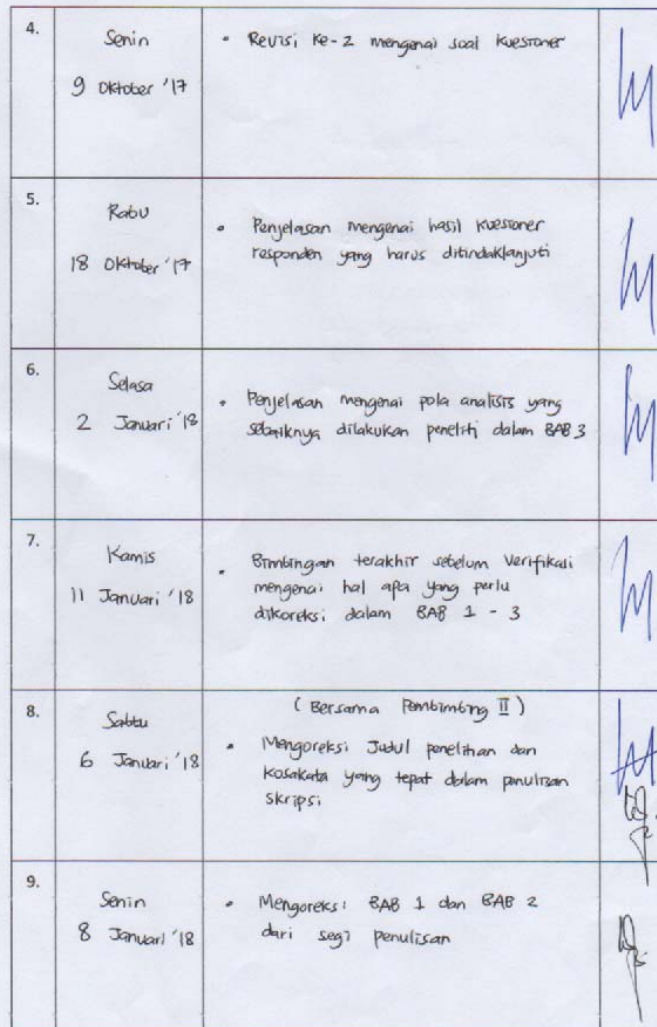 4.
Senin
9 Oktober '17
• Revisi Ke-2 mengenai soal kuesioner
5.
Rabu
18 Oktober '17
• Penjelasan mengenai hasil kuesioner
responden yang harus ditindaklanjuti
6.
Selasa
2 Januari '18
• Penjelasan mengenai pola analisis yang
sebaiknya dilakukan peneliti dalam BAB 3
7.
Kamis
11 Januari '18
• Bimbingan terakhir sebelum Verifikasi
mengenai hal apa yang perlu
dikoreksi dalam BAB 1 - 3
8.
Sabtu
6 Januari '18
( Bersama Pembimbing II )
• Mengoreksi Judul penelitian dan
kosakata yang tepat dalam penulisan
skripsi
9.
Senin
8 Januari '18
• Mengoreksi BAB 1 dan BAB 2
dari segi penulisan